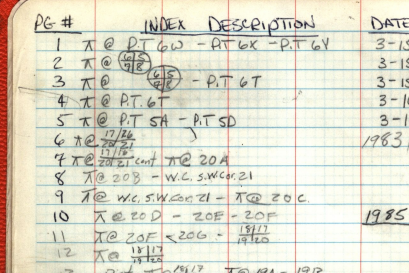 PG # INDEX DESCRIPTION DATE
1 π @ P.T 6W - P.T 6X - P.T 6Y 3-1
2 π @ 6|5 7|8 3-1
3 π @ 6|5 7|8 - P.T 6T 3-1
4 π @ P.T. 6T 3-1
5 π @ P.T 5A - P.T 5D 3-1
6 π @ 17/26 20/21 1983
7 π @ 20/21 cont π @ 20A
8 π @ 20B - W.C. S.W. Cor. 21
9 π @ W.C. S.W. Cor. 21 - π @ 20C.
10 π @ 20D - 20E - 20F 1985
11 π @ 20F - 20G - 18|17 19|20
12 π @ 18|17 19|20
18|17 π @ 19A - 19B